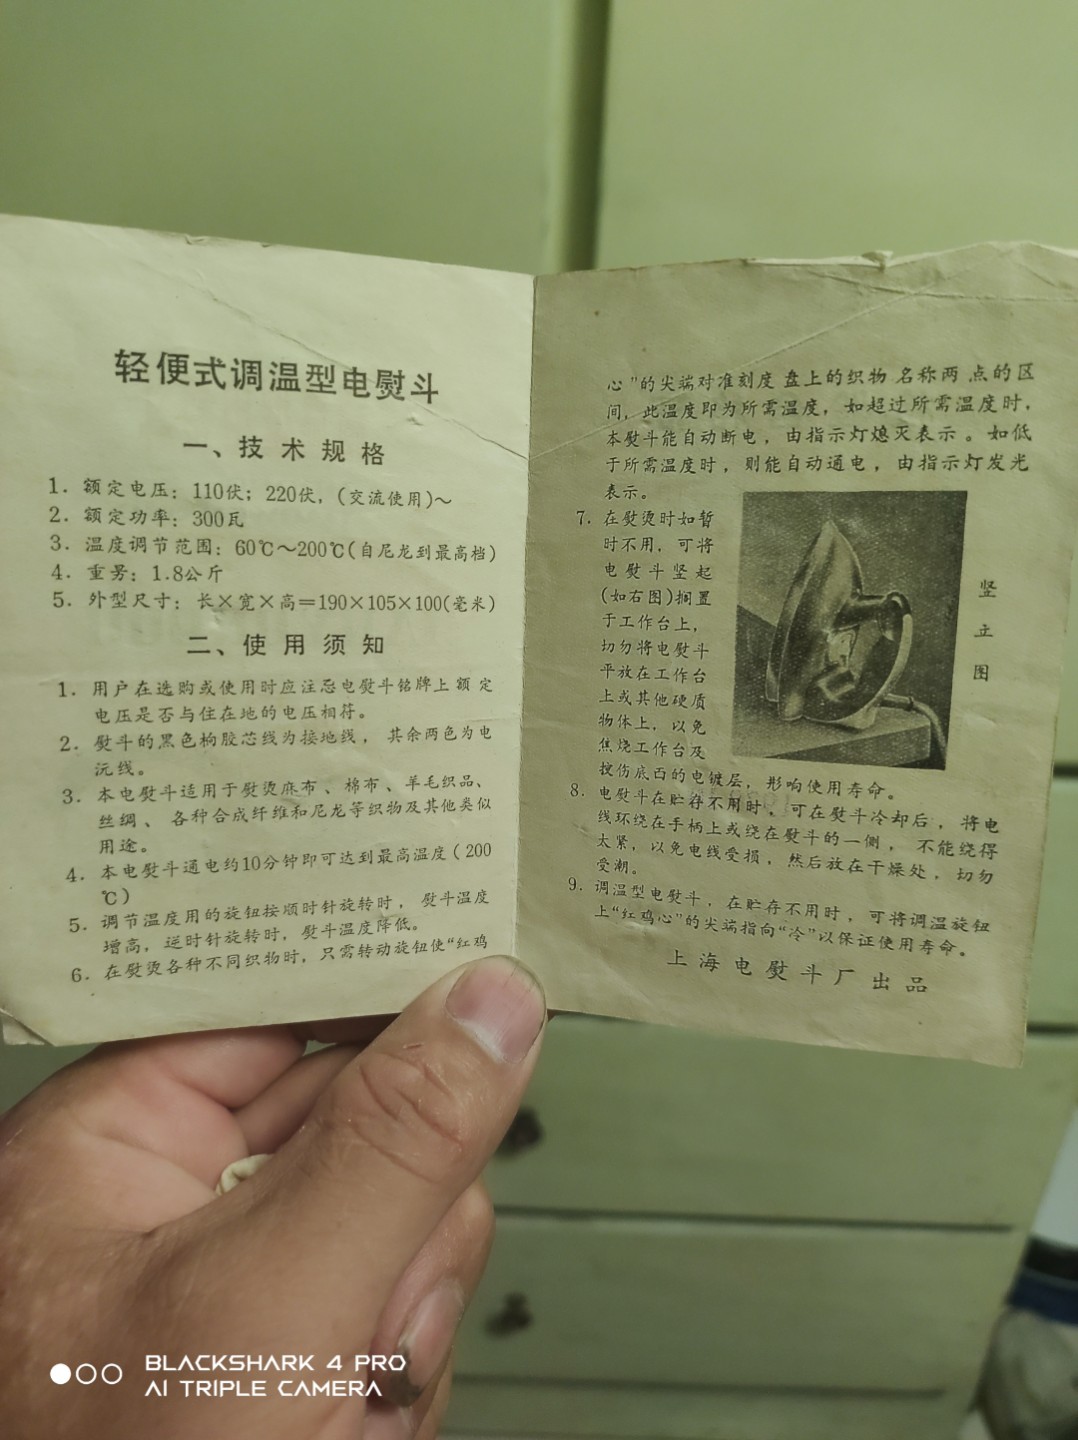 轻便式调温型电熨斗
一、技术规格
1. 额定电压：110伏；220伏，(交流使用)～
2. 额定功率：300瓦
3. 温度调节范围：60℃～200℃(自尼龙到最高档)
4. 重量：1.8公斤
5. 外型尺寸：长×宽×高＝190×105×100(毫米)
二、使用须知
1. 用户在选购或使用时应注意电熨斗铭牌上额定
电压是否与住在地的电压相符。
2. 熨斗的黑色枸胶芯线为接地线，其余两色为电
沅线。
3. 本电熨斗适用于熨烫麻布、棉布、羊毛织品、
丝绸、各种合成纤维和尼龙等织物及其他类似
用途。
4. 本电熨斗通电约10分钟即可达到最高温度(200
℃)
5. 调节温度用的旋钮按顺时针旋转时，熨斗温度
增高，逆时针旋转时，熨斗温度降低。
6. 在熨烫各种不同织物时，只需转动旋钮使“红鸡
心”的尖端对准刻度盘上的织物名称两点的区
间，此温度即为所需温度，如超过所需温度时，
本熨斗能自动断电，由指示灯熄灭表示。如低
于所需温度时，则能自动通电，由指示灯发光
表示。
7. 在熨烫时如暂
时不用，可将
电熨斗竖起
(如右图)搁置
于工作台上，
切勿将电熨斗
平放在工作台
上或其他硬质
物体上，以免
焦烧工作台及
挫伤底面的电镀层，形响使用寿命。
竖
立
图
8. 电熨斗在贮存不用时，可在熨斗冷却后，将电
线环绕在手柄上或绕在熨斗的一侧，不能绕得
太紧，以免电线受损，然后放在干燥处，切勿
受潮。
9. 调温型电熨斗，在贮存不用时，可将调温旋钮
上“红鸡心”的尖端指向“冷”以保证使用寿命。
上海电熨斗厂出品
BLACKSHARK 4 PRO
AI TRIPLE CAMERA